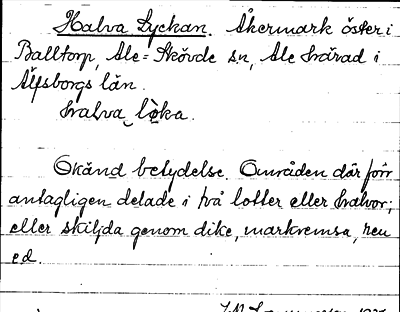 Halva Lyckan. Åkermark öster i
Balltorp, Ale-Skövde sn, Ale härad i
Älfsborgs län.
halva lòka.
Okänd betydelse. Områden där förr
antagligen delade i två lotter eller halvor;
eller skiljda genom dike, markremsa, ren
e.d.